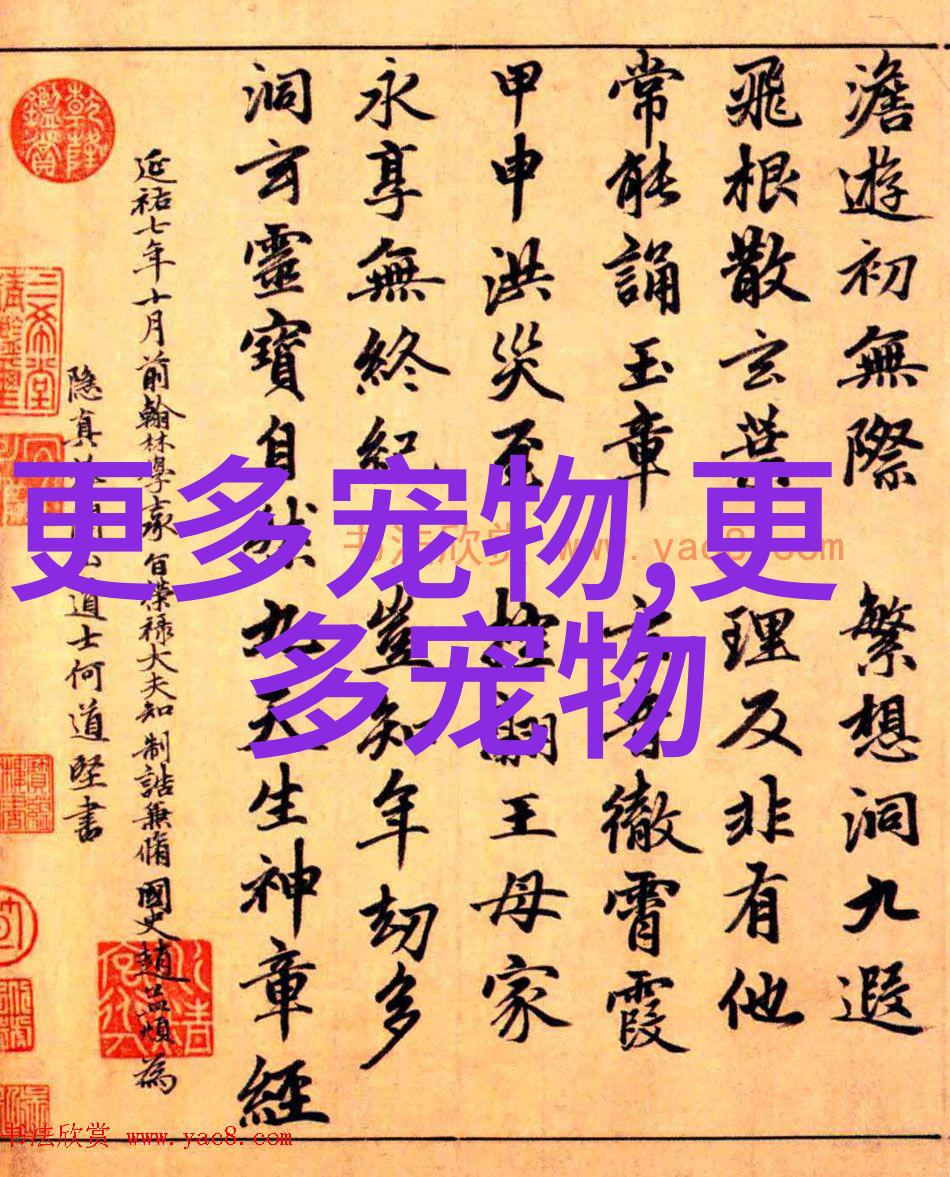 澹遊初無際 繁想洞九遐
飛根散玄葉 理反非有他
常能誦玉章 玄音徹霄霞
甲申洪災至 控翮王母家
永享無終紀 豈知年劫多
洞玄靈寶自然九天生神章經
延祐七年十月前翰林學承旨榮祿大夫知制誥兼脩國史趙孟頫為
隐真 道士何道堅書
乾隆鑑賞
更多宠物,更
多宠物
书法欣赏 www.yac8.com
书法欣赏 www.yac8.com